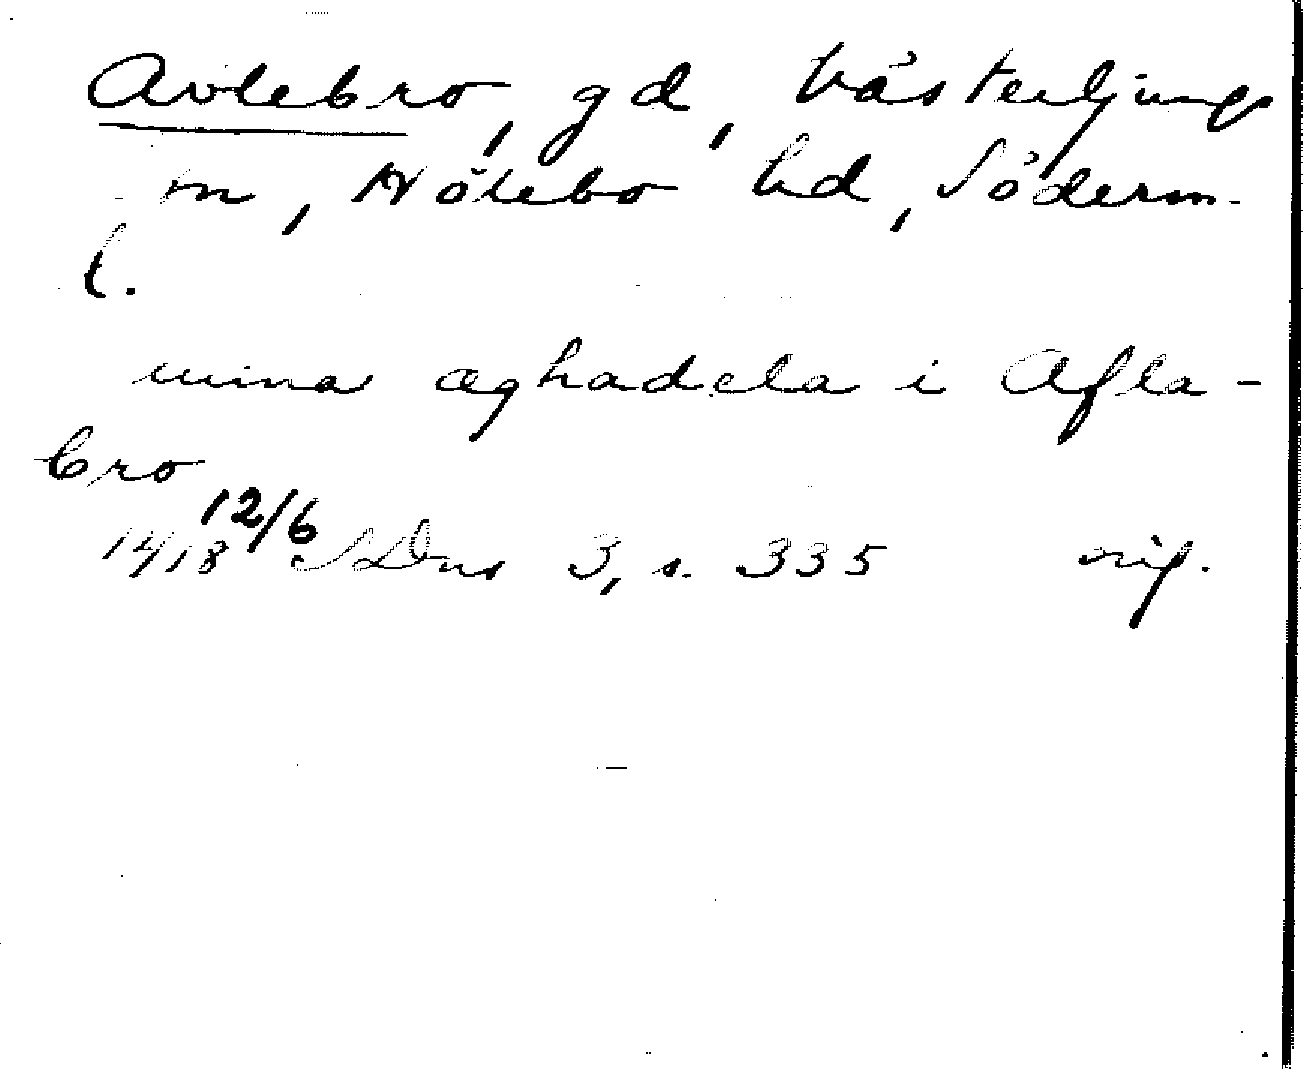 Avlebro, gd, Västerljungs
sn, Hölebo hd, Söderm.
l.
mina æghadela i Afla-
bro
1418 12/6 SDns 3, s. 335 orig.